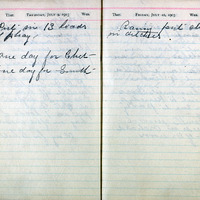 Ther. THURSDAY, JULY 9, 1903 Wea.
Put in 13 loads
of hay
one day for Chet
one day for Smith
Ther. FRIDAY, JULY 10, 1903 Wea.
Rainy part
in ditches